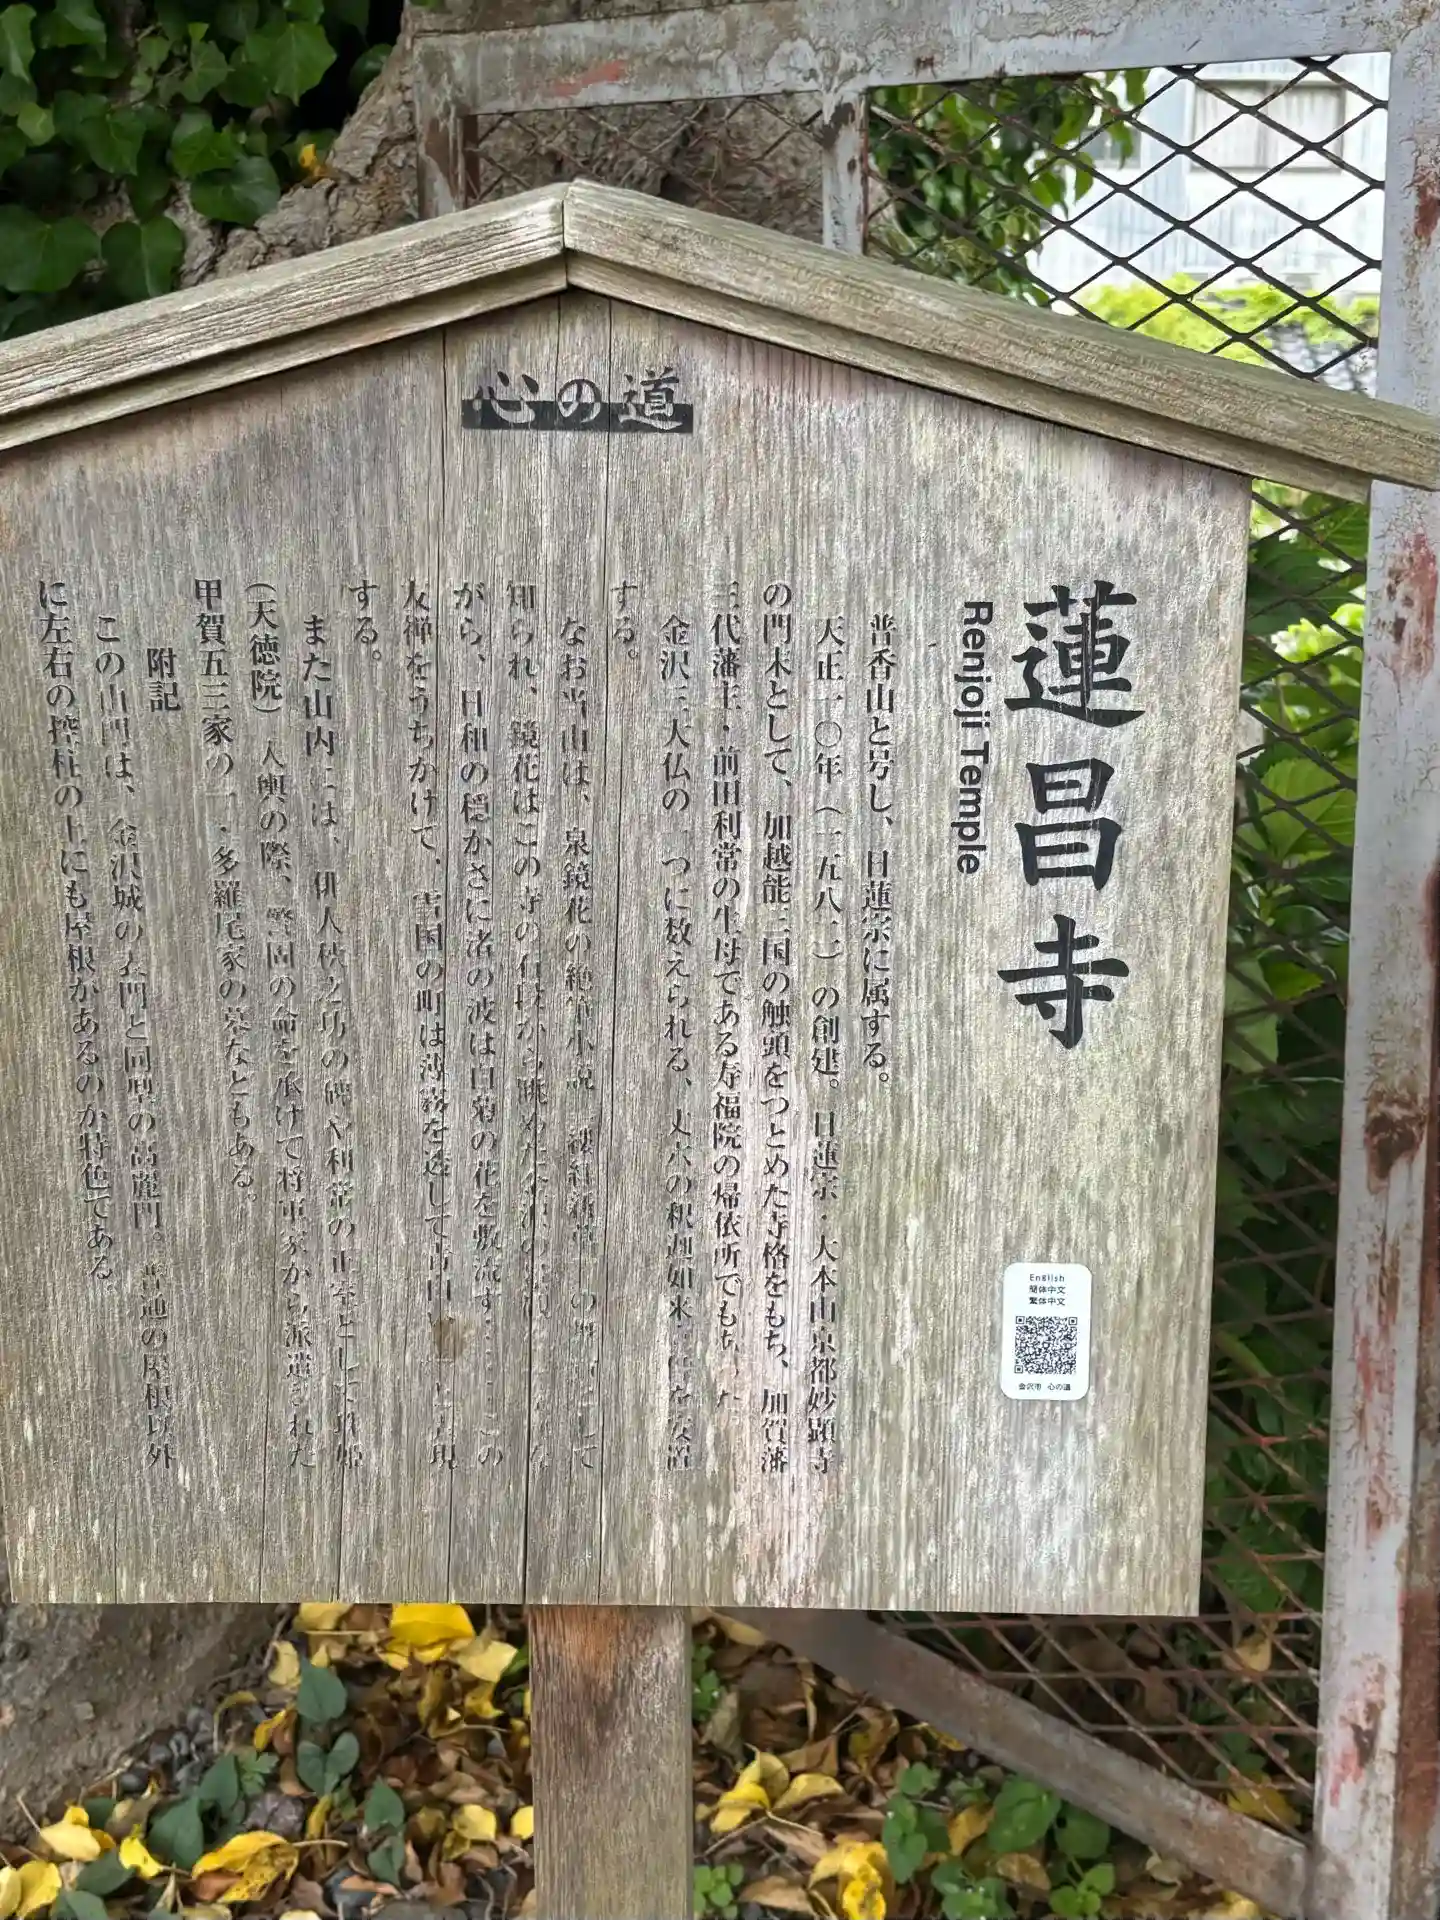 心の道
蓮昌寺
Renjoji Temple
普香山と号し、日蓮宗に属する。
天正一〇年（一五八二）の創建。日蓮宗・大本山京都妙顕寺
の門末として、加越能三国の触頭をつとめた寺格をもち、加賀藩
代藩主・前田利常の生母である寿福院の帰依所でもあった。
金沢三大仏の一つに数えられる、丈六の釈迦如来 を安置
する。
なお当山は、泉鏡花の絶筆小説 縷紅新草 の として
知られ、鏡花はこの寺の石段から眺めた金沢の な
がら、日和の穏かさに渚の波は白菊の花を敷流す……この
友禅をうちかけて、雪国の町は薄霧を透して青白 と 現
する。
また山内には、俳人 之坊の碑や利常の正室とし 珠姫
（天徳院）入輿の際、警固の命を承けて将軍家から派遣された
甲賀五三家の一・多羅尾家の墓などもある。
附記
この山門は、金沢城の 門と同型の高麗門。 の屋根以外
に左右の控柱の上にも屋根があるのが特色である。
English
簡体中文
繁体中文
金沢市 心の道